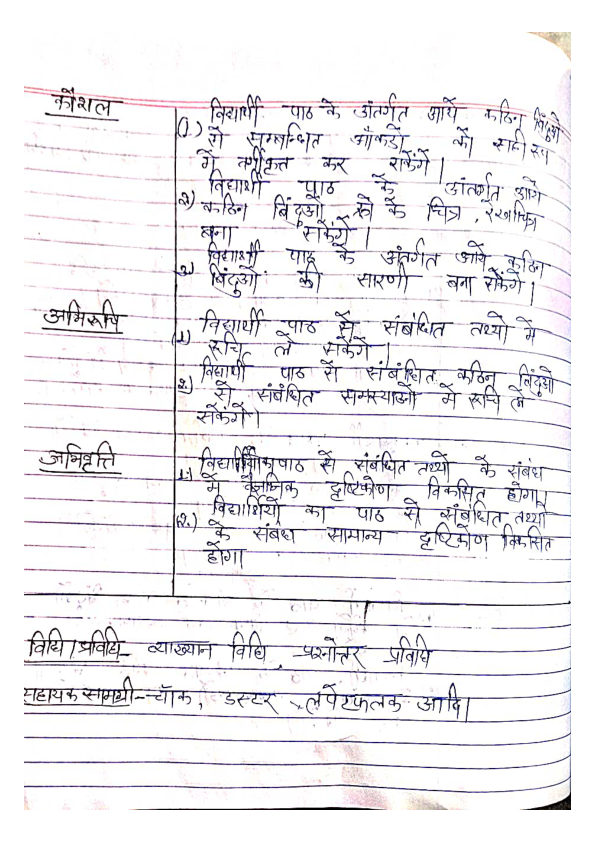 कौशल
विद्यार्थी पाठ के अंतर्गत आये कठिन बिंदुओं
(1.) से सम्बन्धित आँकडो को सही रूप
में वर्गीकृत कर सकेंगे।
विद्यार्थी पाठ के अंतर्गत आये
2) कठिन बिंदुओं के चित्र, रेखाचित्र
बना सकेंगे।
विद्यार्थी पाठ के अंतर्गत आये कठिन
3) बिंदुओं की सारणी बना सकेंगे।
अभिरूचि
विद्यार्थी पाठ से संबंधित तथ्यों में
1) रूचि ले सकेंगे।
विद्यार्थी पाठ से संबंधित कठिन बिंदुओं
2.) से संबंधित समस्याओं में रूचि ले
सकेंगे।
अभिवृत्ति
पाठ से संबंधित तथ्यों के संबंध
1.) में वैज्ञानिक दृष्टिकोण विकसित होगा।
विद्यार्थियों का पाठ से संबंधित तथ्यों
(2.) के संबंध सामान्य दृष्टिकोण विकसित
होगा।
विधि/प्रविधि- व्याख्यान विधि, प्रश्नोत्तर प्रविधि
सहायक सामग्री-- चॉक, डस्टर, लपेटफलक आदि।